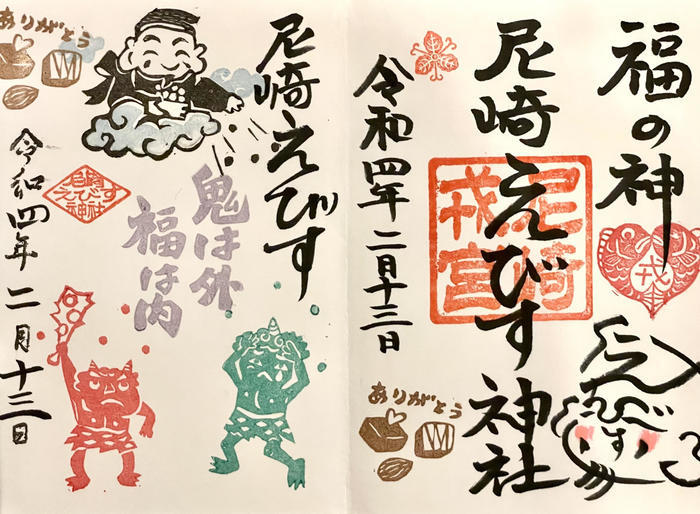 福の神
戎
えびす
尼崎えびす神社
尼崎
戎宮
令和四年二月十三日
ありがとう
尼崎えびす
鬼は外
福は内
尼崎
えびす
神社
令和四年二月十三日
ありがとう